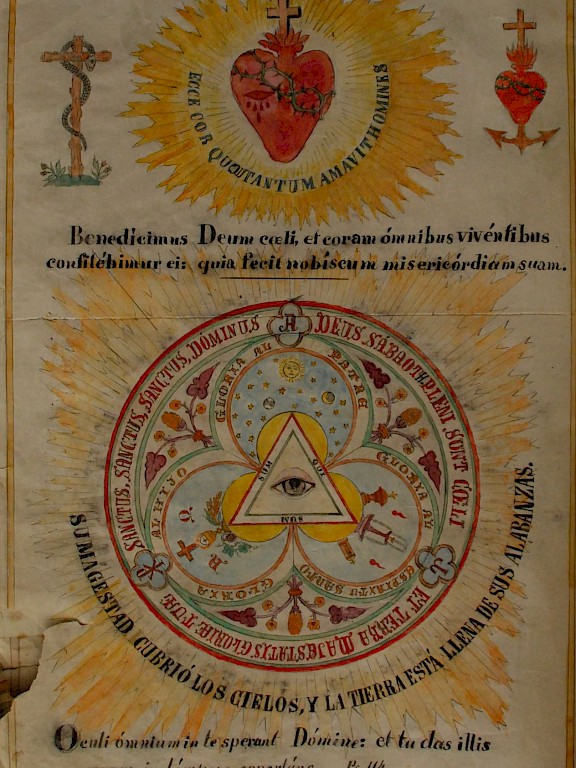 ECCE COR QUOD TANTUM AMAVIT HOMINES
Benedicimus Deum cœli, et coram ómnibus vivéntibus
confitébimur ei: quia fecit nobíscum misericórdiam suam.
SANCTUS, SANCTUS, SANCTUS, DÓMINUS DEUS SABAOTH PLENI SUNT CŒLI ET TERRA MAJESTATIS GLORIÆ TUÆ
GLORIA AU PATRE
GLORIA AU ESPIRITU SANTO
GLORIA AU HIJO
SUM QUI SUM
SU MAGESTAD CUBRIÓ LOS CIELOS, Y LA TIERRA ESTÁ LLENA DE SUS ALABANZAS.
Oculi ómnium in te sperant Dómine: et tu das illis